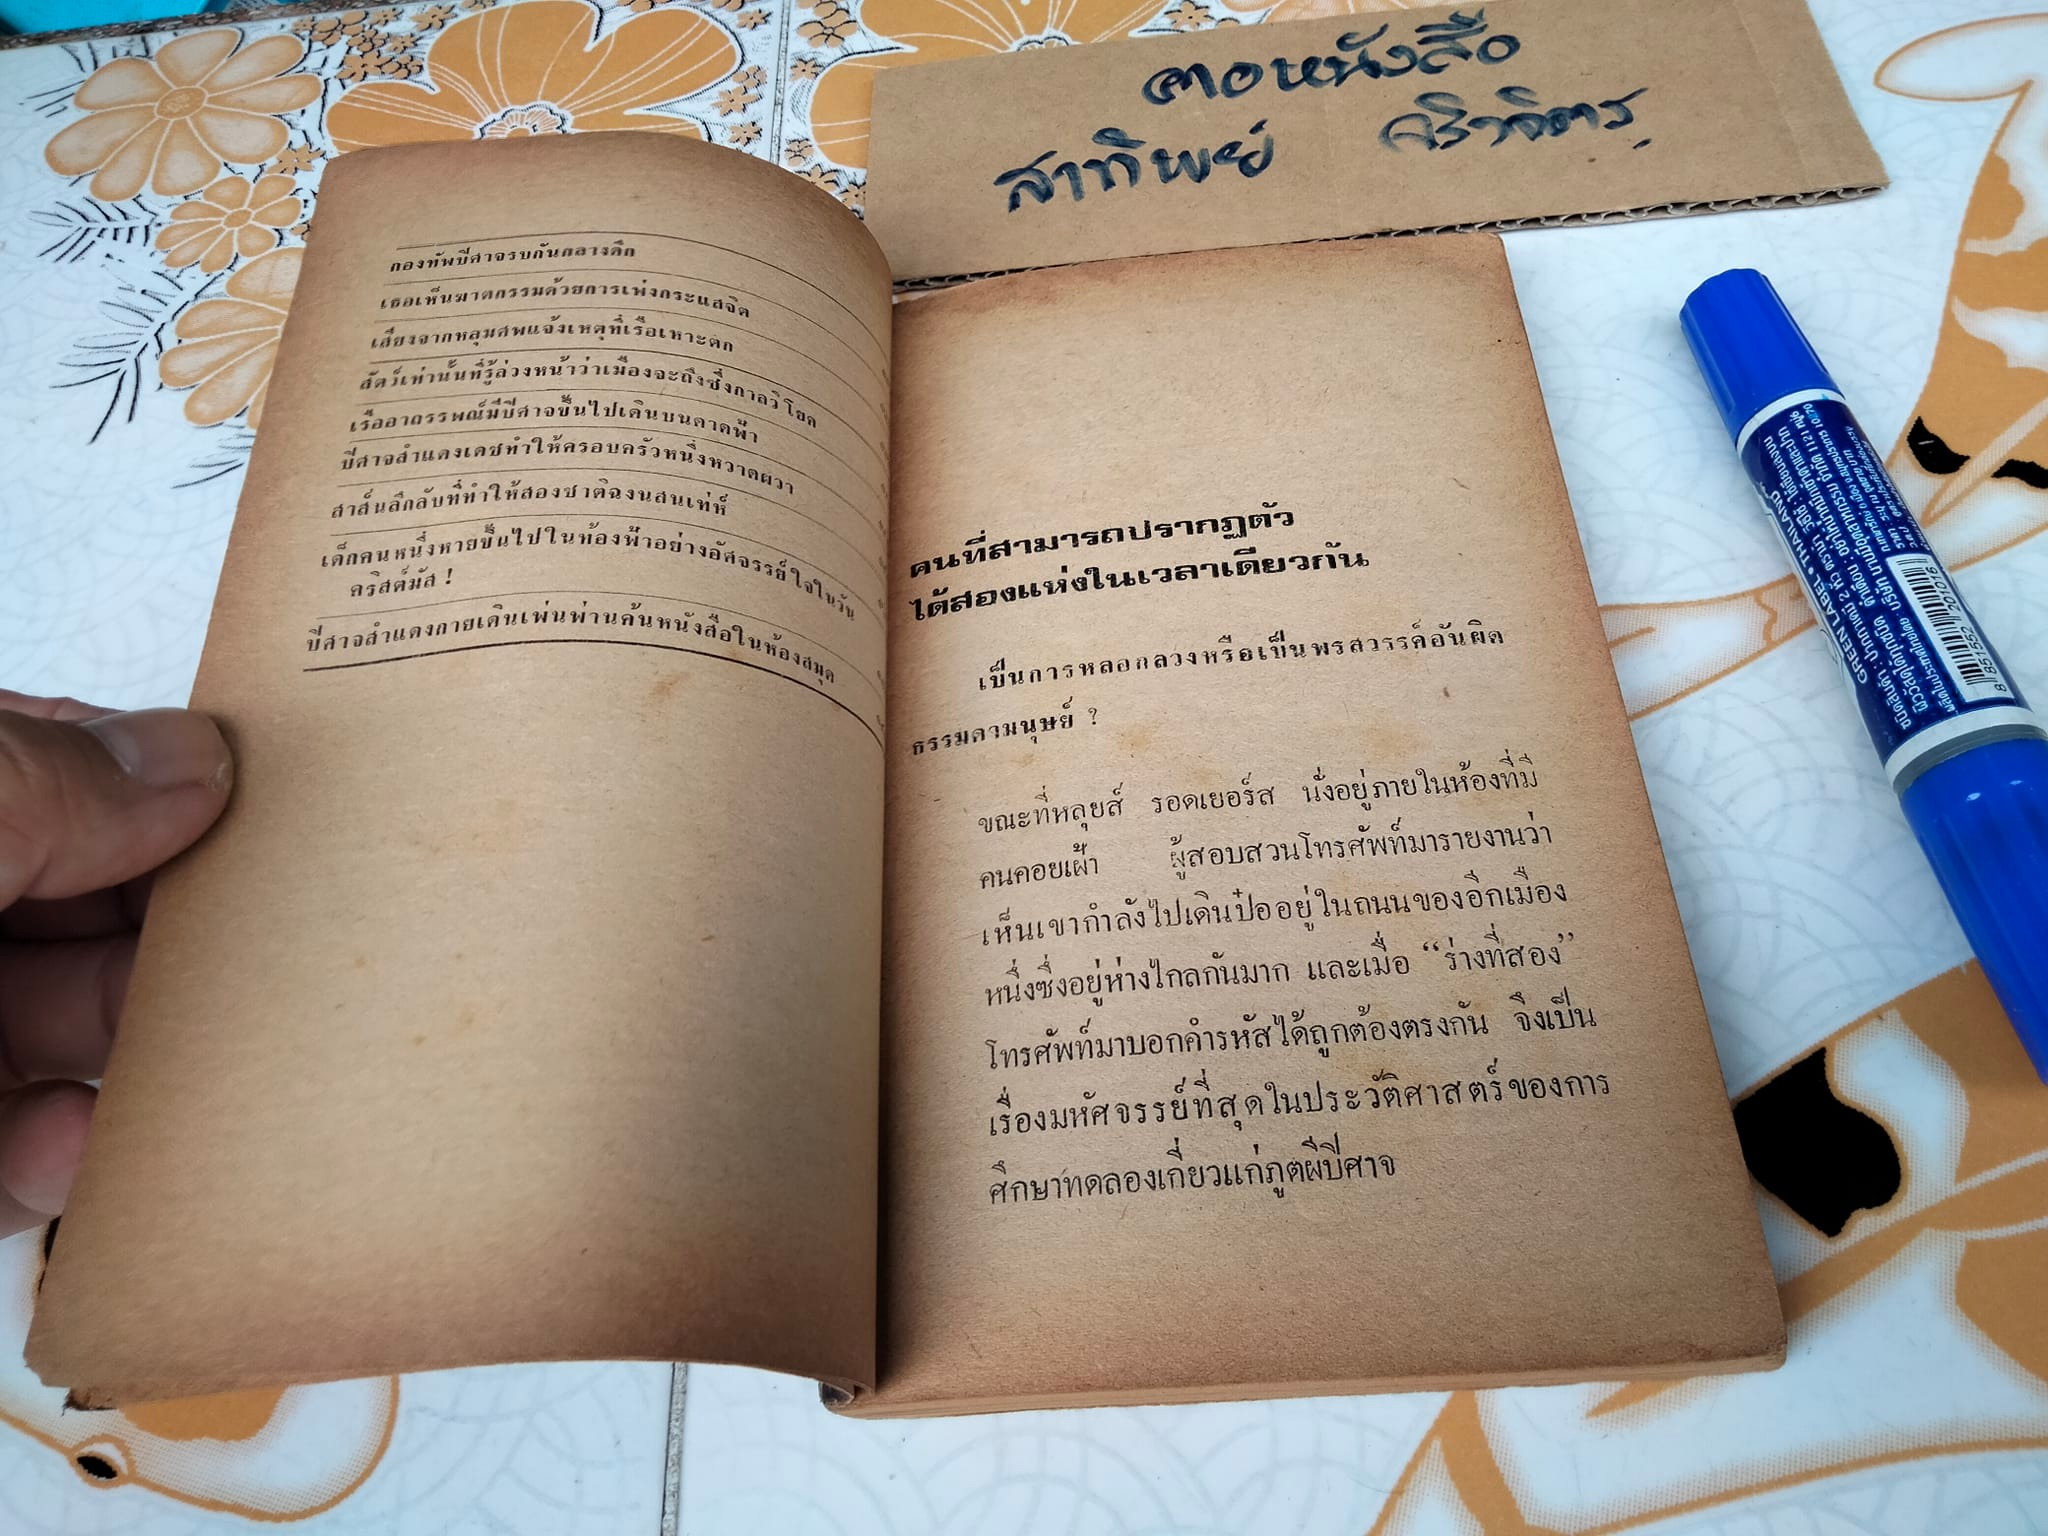 คอหนังสือ
สาทิพย์ ศริวจิตร
กองทัพปีศาจรบกันกลางดึก
เธอเห็นฆาตกรรมด้วยการเพ่งกระแสจิต
เสียงจากหลุมศพแจ้งเหตุที่เรือเหาะตก
สัตว์เท่านั้นที่รู้ล่วงหน้าว่าเมืองจะถึงซึ่งกาลวิโยค
เรืออาถรรพณ์มีปีศาจขึ้นไปเดินบนดาดฟ้า
ปีศาจสำแดงเดชทำให้ครอบครัวหนึ่งหวาดผวา
สาส์นลึกลับที่ทำให้สองชาติฉงนสนเท่ห์
เด็กคนหนึ่งหายขึ้นไปในท้องฟ้าอย่างอัศจรรย์ใจในวัน
คริสต์มัส !
ปีศาจสำแดงกายเดินเพ่นพ่านค้นหนังสือในห้องสมุด
คนที่สามารถปรากฏตัว
ได้สองแห่งในเวลาเดียวกัน
เป็นการหลอกลวงหรือเป็นพรสวรรค์อันผิด
ธรรมดามนุษย์ ?
ขณะที่หลุยส์ รอดเยอร์ส นั่งอยู่ภายในห้องที่มี
คนคอยเฝ้า ผู้สอบสวนโทรศัพท์มารายงานว่า
เห็นเขากำลังไปเดินป๋ออยู่ในถนนของอีกเมือง
หนึ่งซึ่งอยู่ห่างไกลกันมาก และเมื่อ “ร่างที่สอง”
โทรศัพท์มาบอกคำรหัสได้ถูกต้องตรงกัน จึงเป็น
เรื่องมหัศจรรย์ที่สุดในประวัติศาสตร์ของการ
ศึกษาทดลองเกี่ยวแก่ภูตผีปีศาจ
GREEN LABEL • THAILAND
8 851552 201016